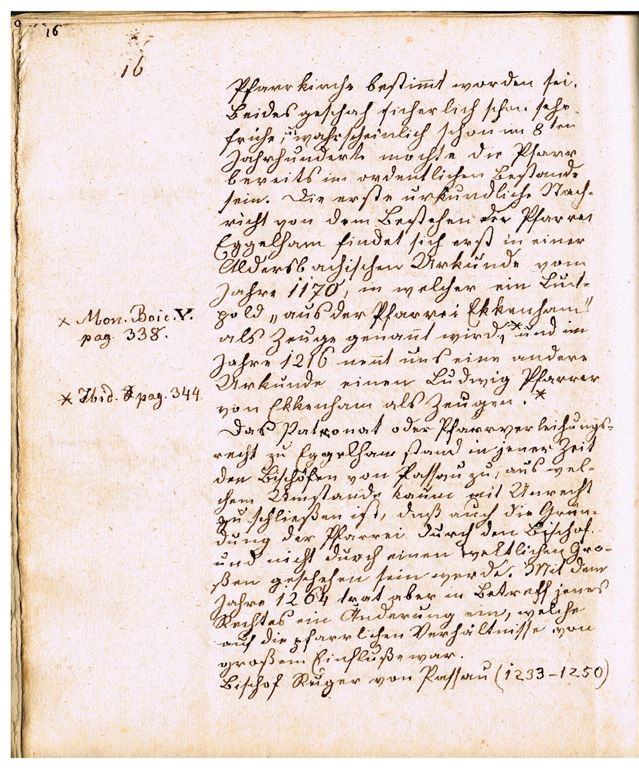 16
16
Pfarrkirche bestimmt worden sei.
Beides geschah sicherlich schon sehr
frühe, wahrscheinlich schon im 8ten
Jahrhunderte mochte die Pfarr
bereits im ordentlichen Bestande
sein. Die erste urkundliche Nach-
richt von dem Bestehen der Pfarrei
Eggelham findet sich erst in einer
Aldersbachischen Urkunde vom
Jahre 1170, in welcher ein Luit-
pold „aus der Pfarrei Ekkenham“
als Zeuge genannt wird, × und im
× Mon. Boic. V.
pag. 338.
Jahre 1216 nennt uns eine andere
Urkunde einen Ludwig Pfarrer
von Ekkenham als Zeugen. *
* Ibid. pag. 344.
Das Patronat oder Pfarrverleihungs-
recht zu Eggelham stand in jener Zeit
den Bischöfen von Passau zu, aus wel-
chem Umstande kaum mit Unrecht
zu schließen ist, daß auch die Grün-
dung der Pfarrei durch den Bischof
und nicht durch einen weltlichen Gro-
ßen geschehen sein werde. Mit dem
Jahre 1264 trat aber in Betreff jenes
Rechtes ein Änderung ein, welche
auf die pfarrlichen Verhältnisse von
großem Einfluße war.
Bischof Rüger von Passau (1233–1250)